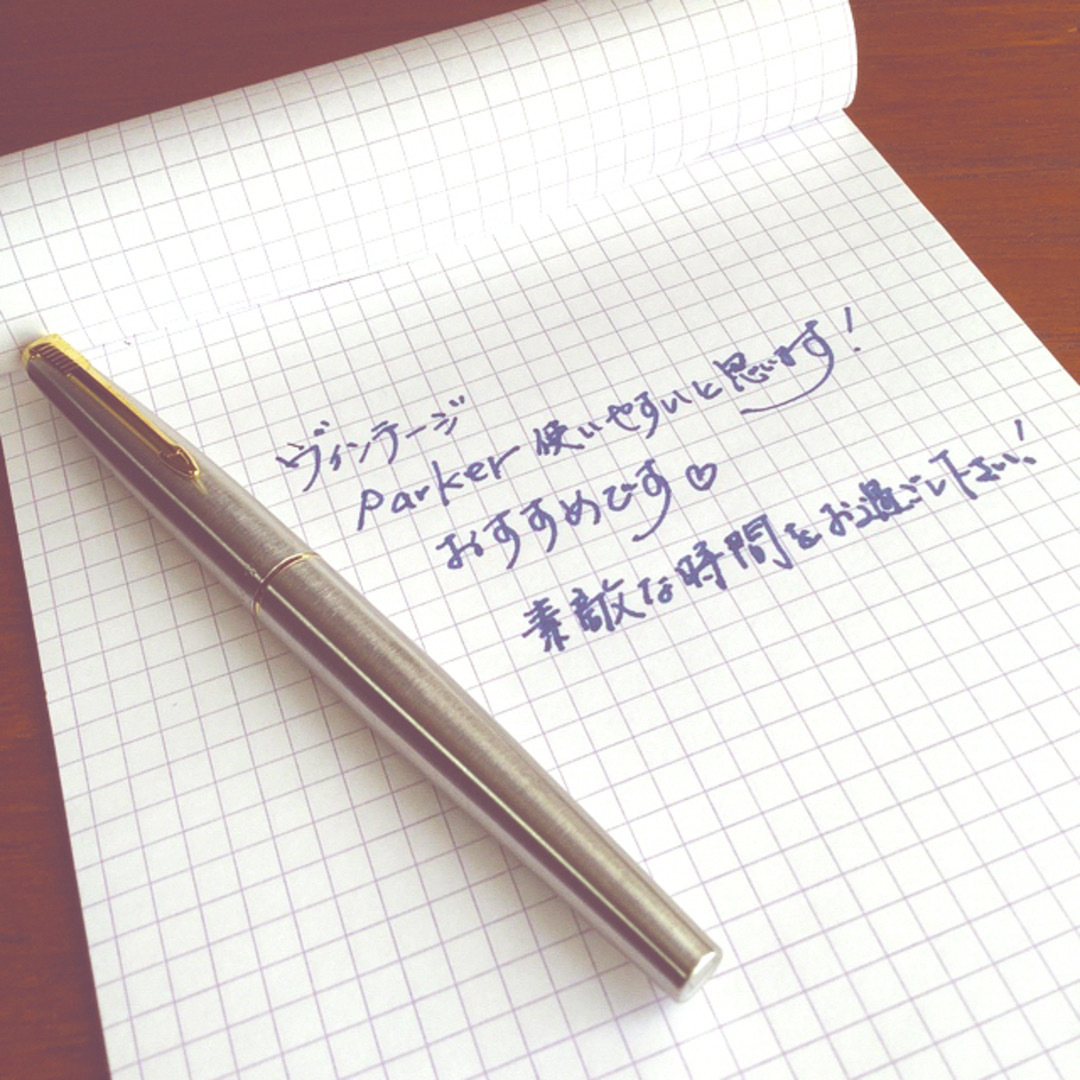 ヴィンテージ
Parker 使いやすいと思います!
おすすめです♡
素敵な時間をお過ごし下さい!